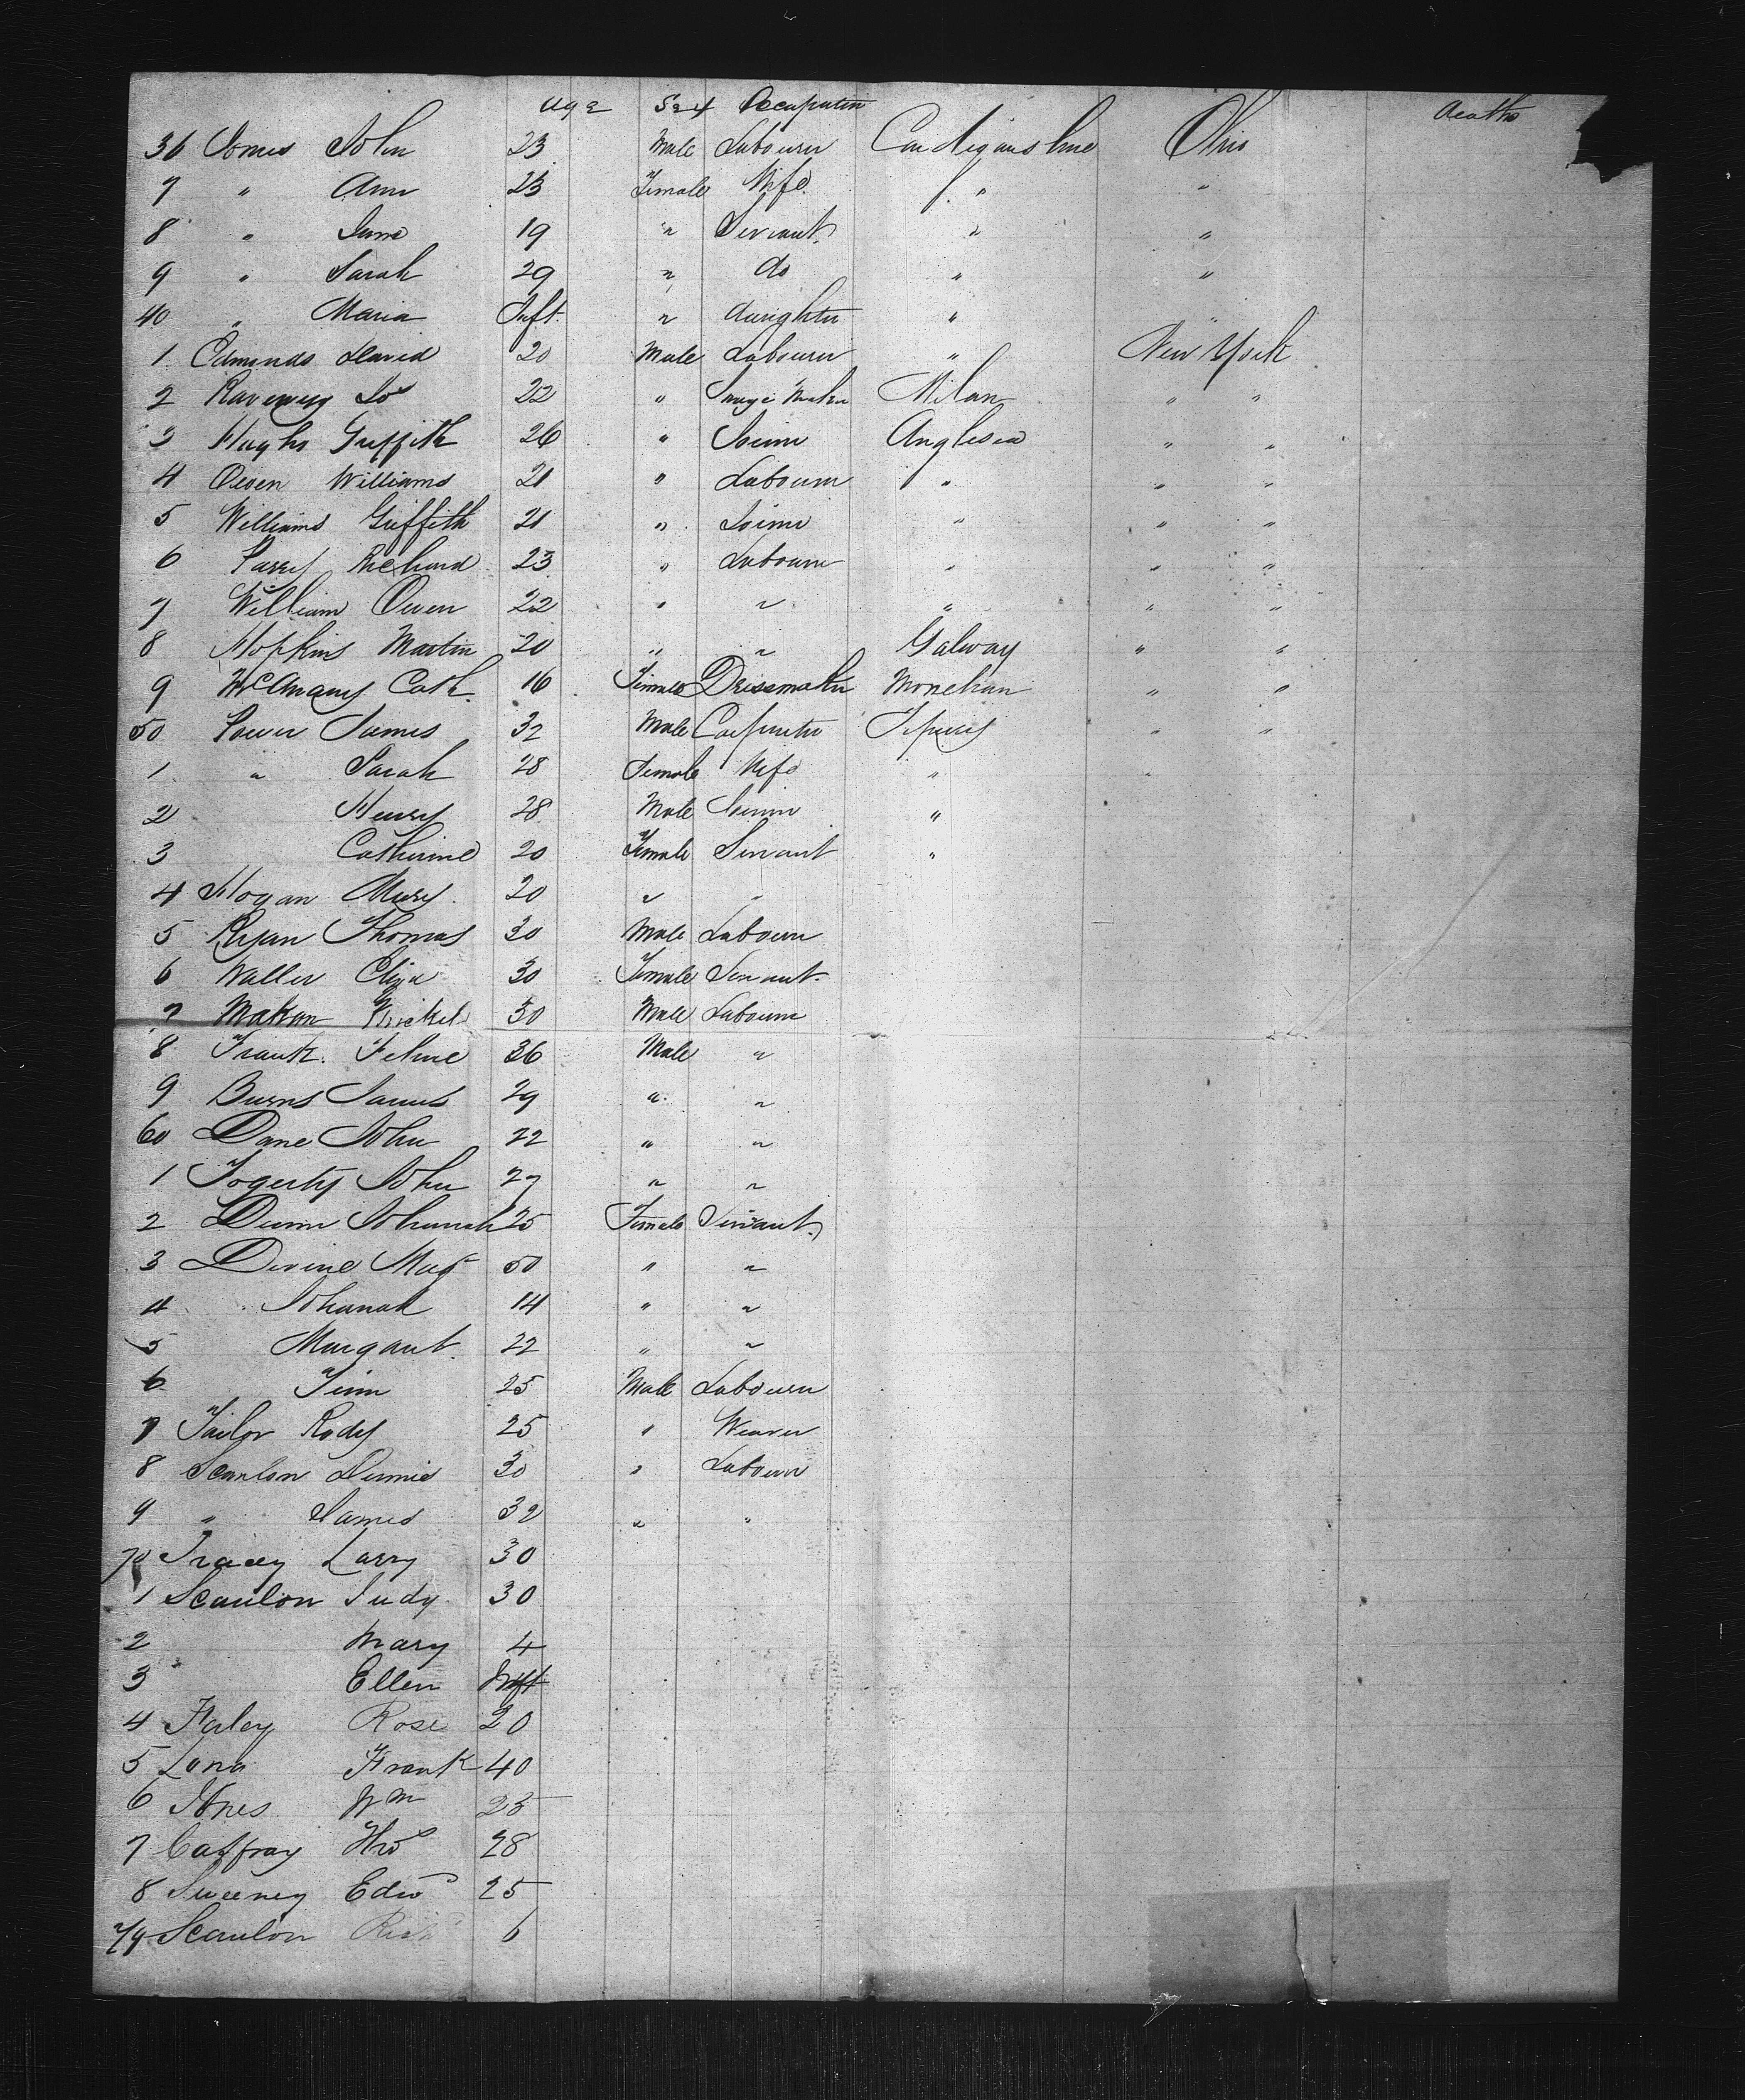 Age Sex Occupation Deaths
36 Jones John 23 Male Labourer Cardiganshire Ohio
7 " Ann 23 Female Wife " "
8 " Jane 19 " Servant " "
9 " Sarah 29 " do " "
40 " Maria Inft. " daughter " "
1 Edmunds David 20 Male Labourer " New York
2 Do 22 " Maker Milan " "
3 Hughs Griffith 26 " Joiner Anglesea " "
4 Owen Williams 21 " Labourer " " "
5 Williams Griffith 21 " Joiner " " "
6 Parry Richard 23 " Labourer " " "
7 William Owen 22 " " " " "
8 Hopkins Martin 20 " " Galway " "
9 Cath. 16 Female Dressmaker Monehan " "
50 Power James 32 Male Carpenter " "
1 " Sarah 28 Female Wife " "
2 Henry 28 Male Joiner "
3 Catherine 20 Female Servant "
4 Hogan Mary 20 " "
5 Ryan Thomas 30 Male Labourer
6 Waller Eliza 30 Female Servant
7 30 Male Labourer
8 Frank. 36 Male "
9 Burns James 29 " "
60 Dane John 22 " "
1 Fogerty John 27 " "
2 Dunn Johanah 25 Female Servant
3 Devine Mag 50 " "
4 Johanah 14 " "
5 Margaret 22 " "
6 Tim 25 Male Labourer
7 Tailor Rody 25 " Weaver
8 Scanlon Dennis 30 " Labourer
9 " James 32 " "
70 Tracey Larry 30
1 Scanlon Judy 30
2 Mary 4
3 Ellen Inft
4 Haley Rose 20
5 Frank 40
6 Jones Wm 25
7 Caffray 28
8 Sweeney Edwd 25
79 Scanlon 6